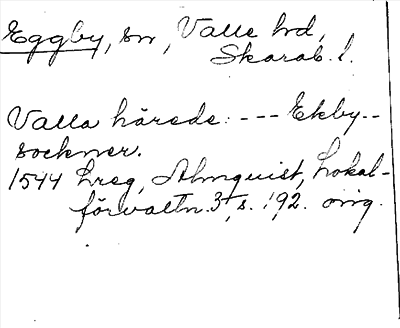 Eggby, sn, Valle hd,
Skarab. l.
Valla härede: --- Ekby--
sockner.
1544 Lreg, Almquist, Lokal-
förvaltn. 3, s. 192. orig.